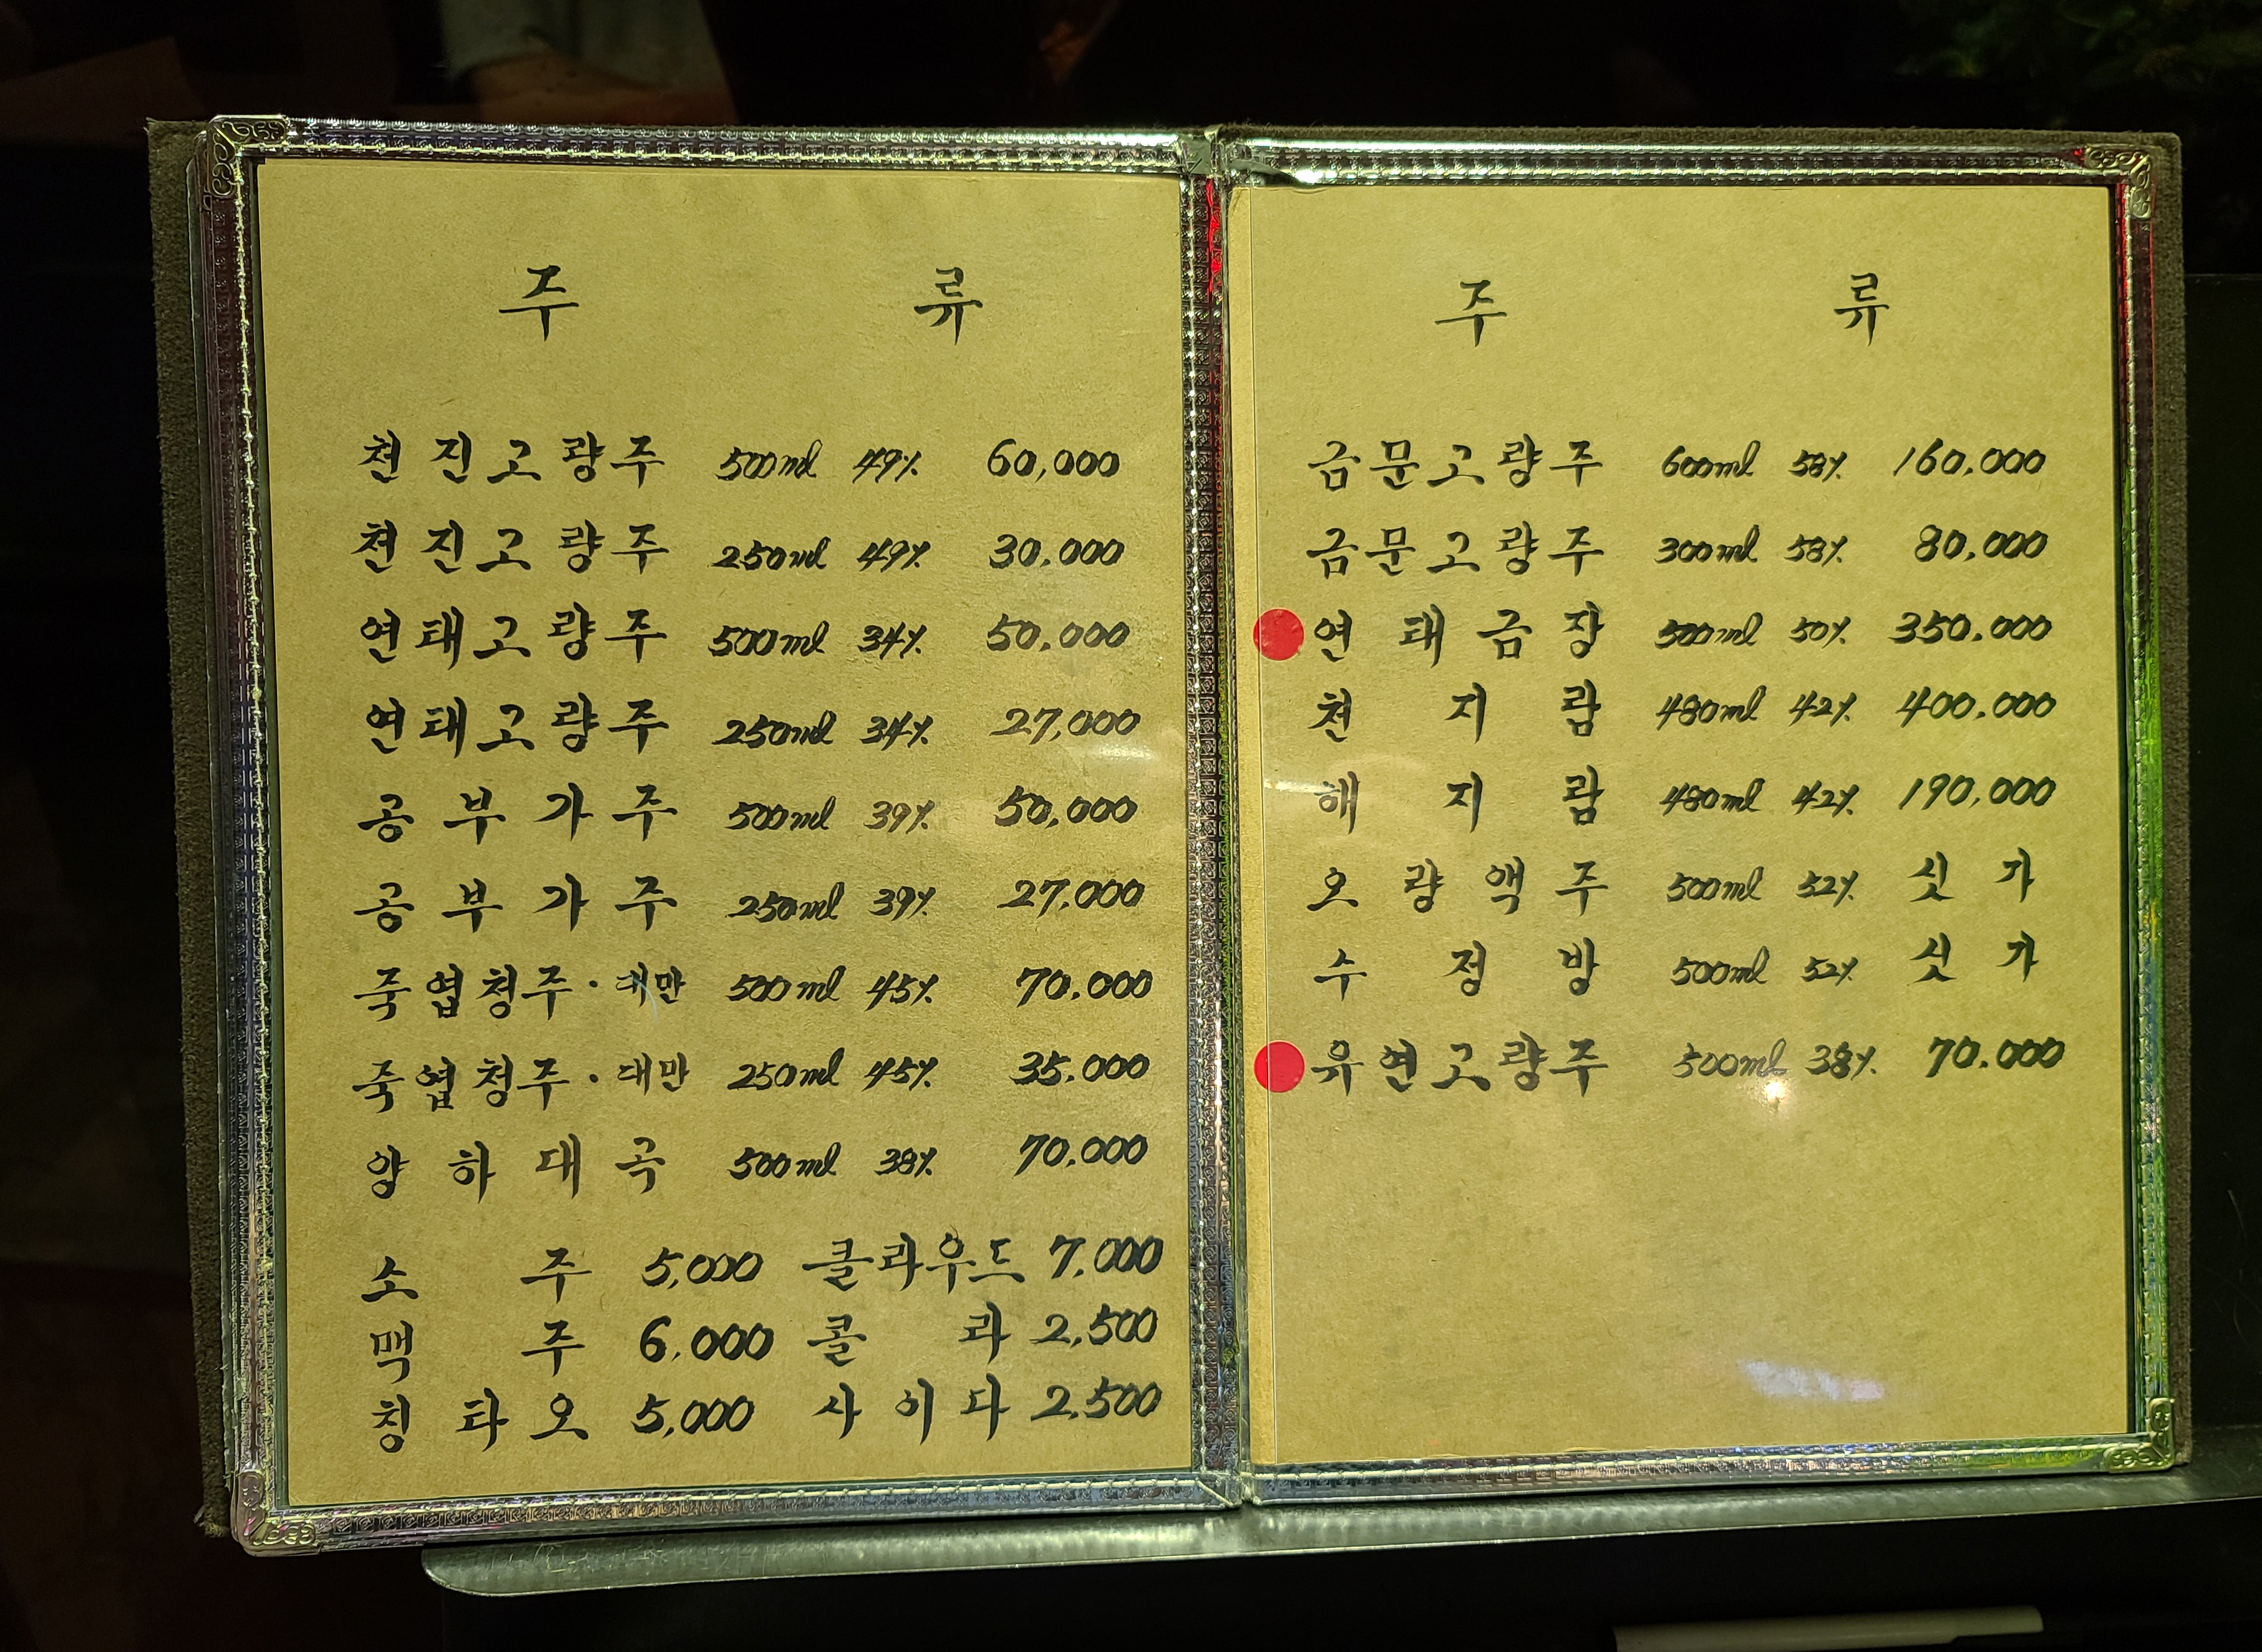 주 류
천진고량주 500ml 49% 60,000
천진고량주 250ml 49% 30,000
연태고량주 500ml 34% 50,000
연태고량주 250ml 34% 27,000
공부가주 500ml 39% 50,000
공부가주 250ml 39% 27,000
죽엽청주·대만 500ml 45% 70,000
죽엽청주·대만 250ml 45% 35,000
양하대곡 500ml 38% 70,000
소주 5,000 클라우드 7,000
맥주 6,000 콜라 2,500
칭타오 5,000 사이다 2,500
주 류
금문고량주 600ml 58% 160,000
금문고량주 300ml 58% 80,000
연태금장 500ml 50% 350,000
천지람 480ml 42% 400,000
해지람 480ml 42% 190,000
오량액주 500ml 52% 싯가
수정방 500ml 52% 싯가
유연고량주 500ml 38% 70,000